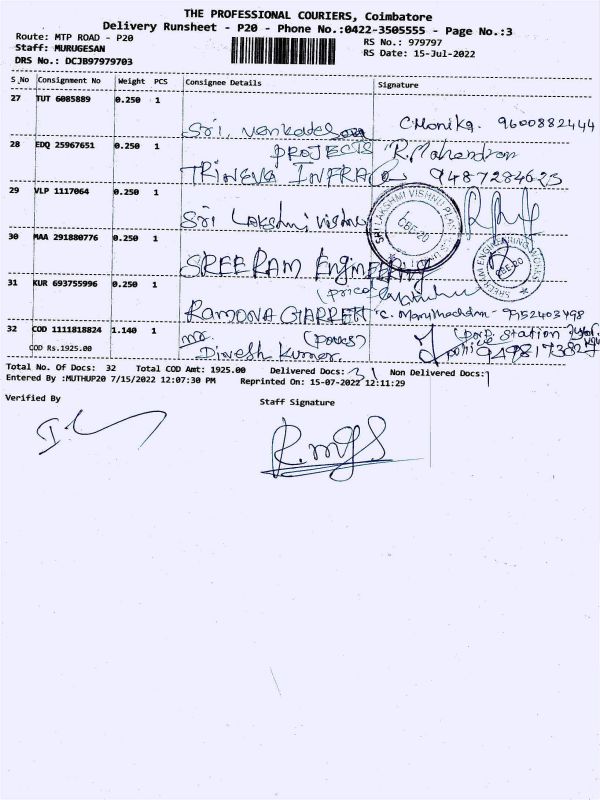 THE PROFESSIONAL COURIERS, Coimbatore
Delivery Runsheet - P20 - Phone No.:0422-3505555 - Page No.:3
Route: MTP ROAD - P20
RS No.: 979797
Staff: MURUGESAN
RS Date: 15-Jul-2022
DRS No.: DCJB97979703
S_No Consignment No Weight PCS Consignee Details Signature
27 TUT 6085889 0.250 1
Sri. Venkadesa C.Monika. 9600882444
28 EDQ 25967651 0.250 1 PROJECTS R.Mahendran
TRINEVA INFRA 9487284623
29 VLP 1117064 0.250 1
Sri Lakshmi Vishnu
30 MAA 291880776 0.250 1
SREE RAM Engineering
31 KUR 693755996 0.250 1
RAMDOVA
32 COD 1111818824 1.140 1 mr.
COD Rs.1925.00 Dinesh Kumar.
Total No. Of Docs: 32 Total COD Amt: 1925.00 Delivered Docs: 31 Non Delivered Docs: 1
Entered By :MUTHUP20 7/15/2022 12:07:30 PM Reprinted On: 15-07-2022 12:11:29
Verified By
Staff Signature